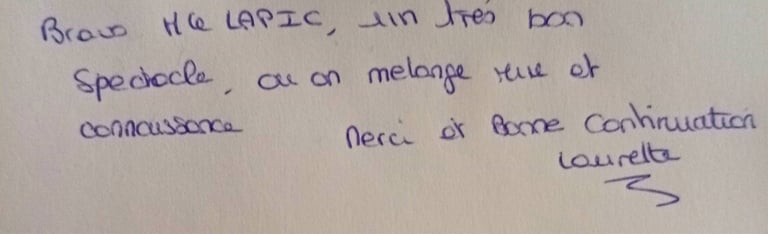 Bravo Mle LAPIC, un très bon
Spectacle, ou on melange rire et
connaissance Merci et Bonne Continuation
Laurette